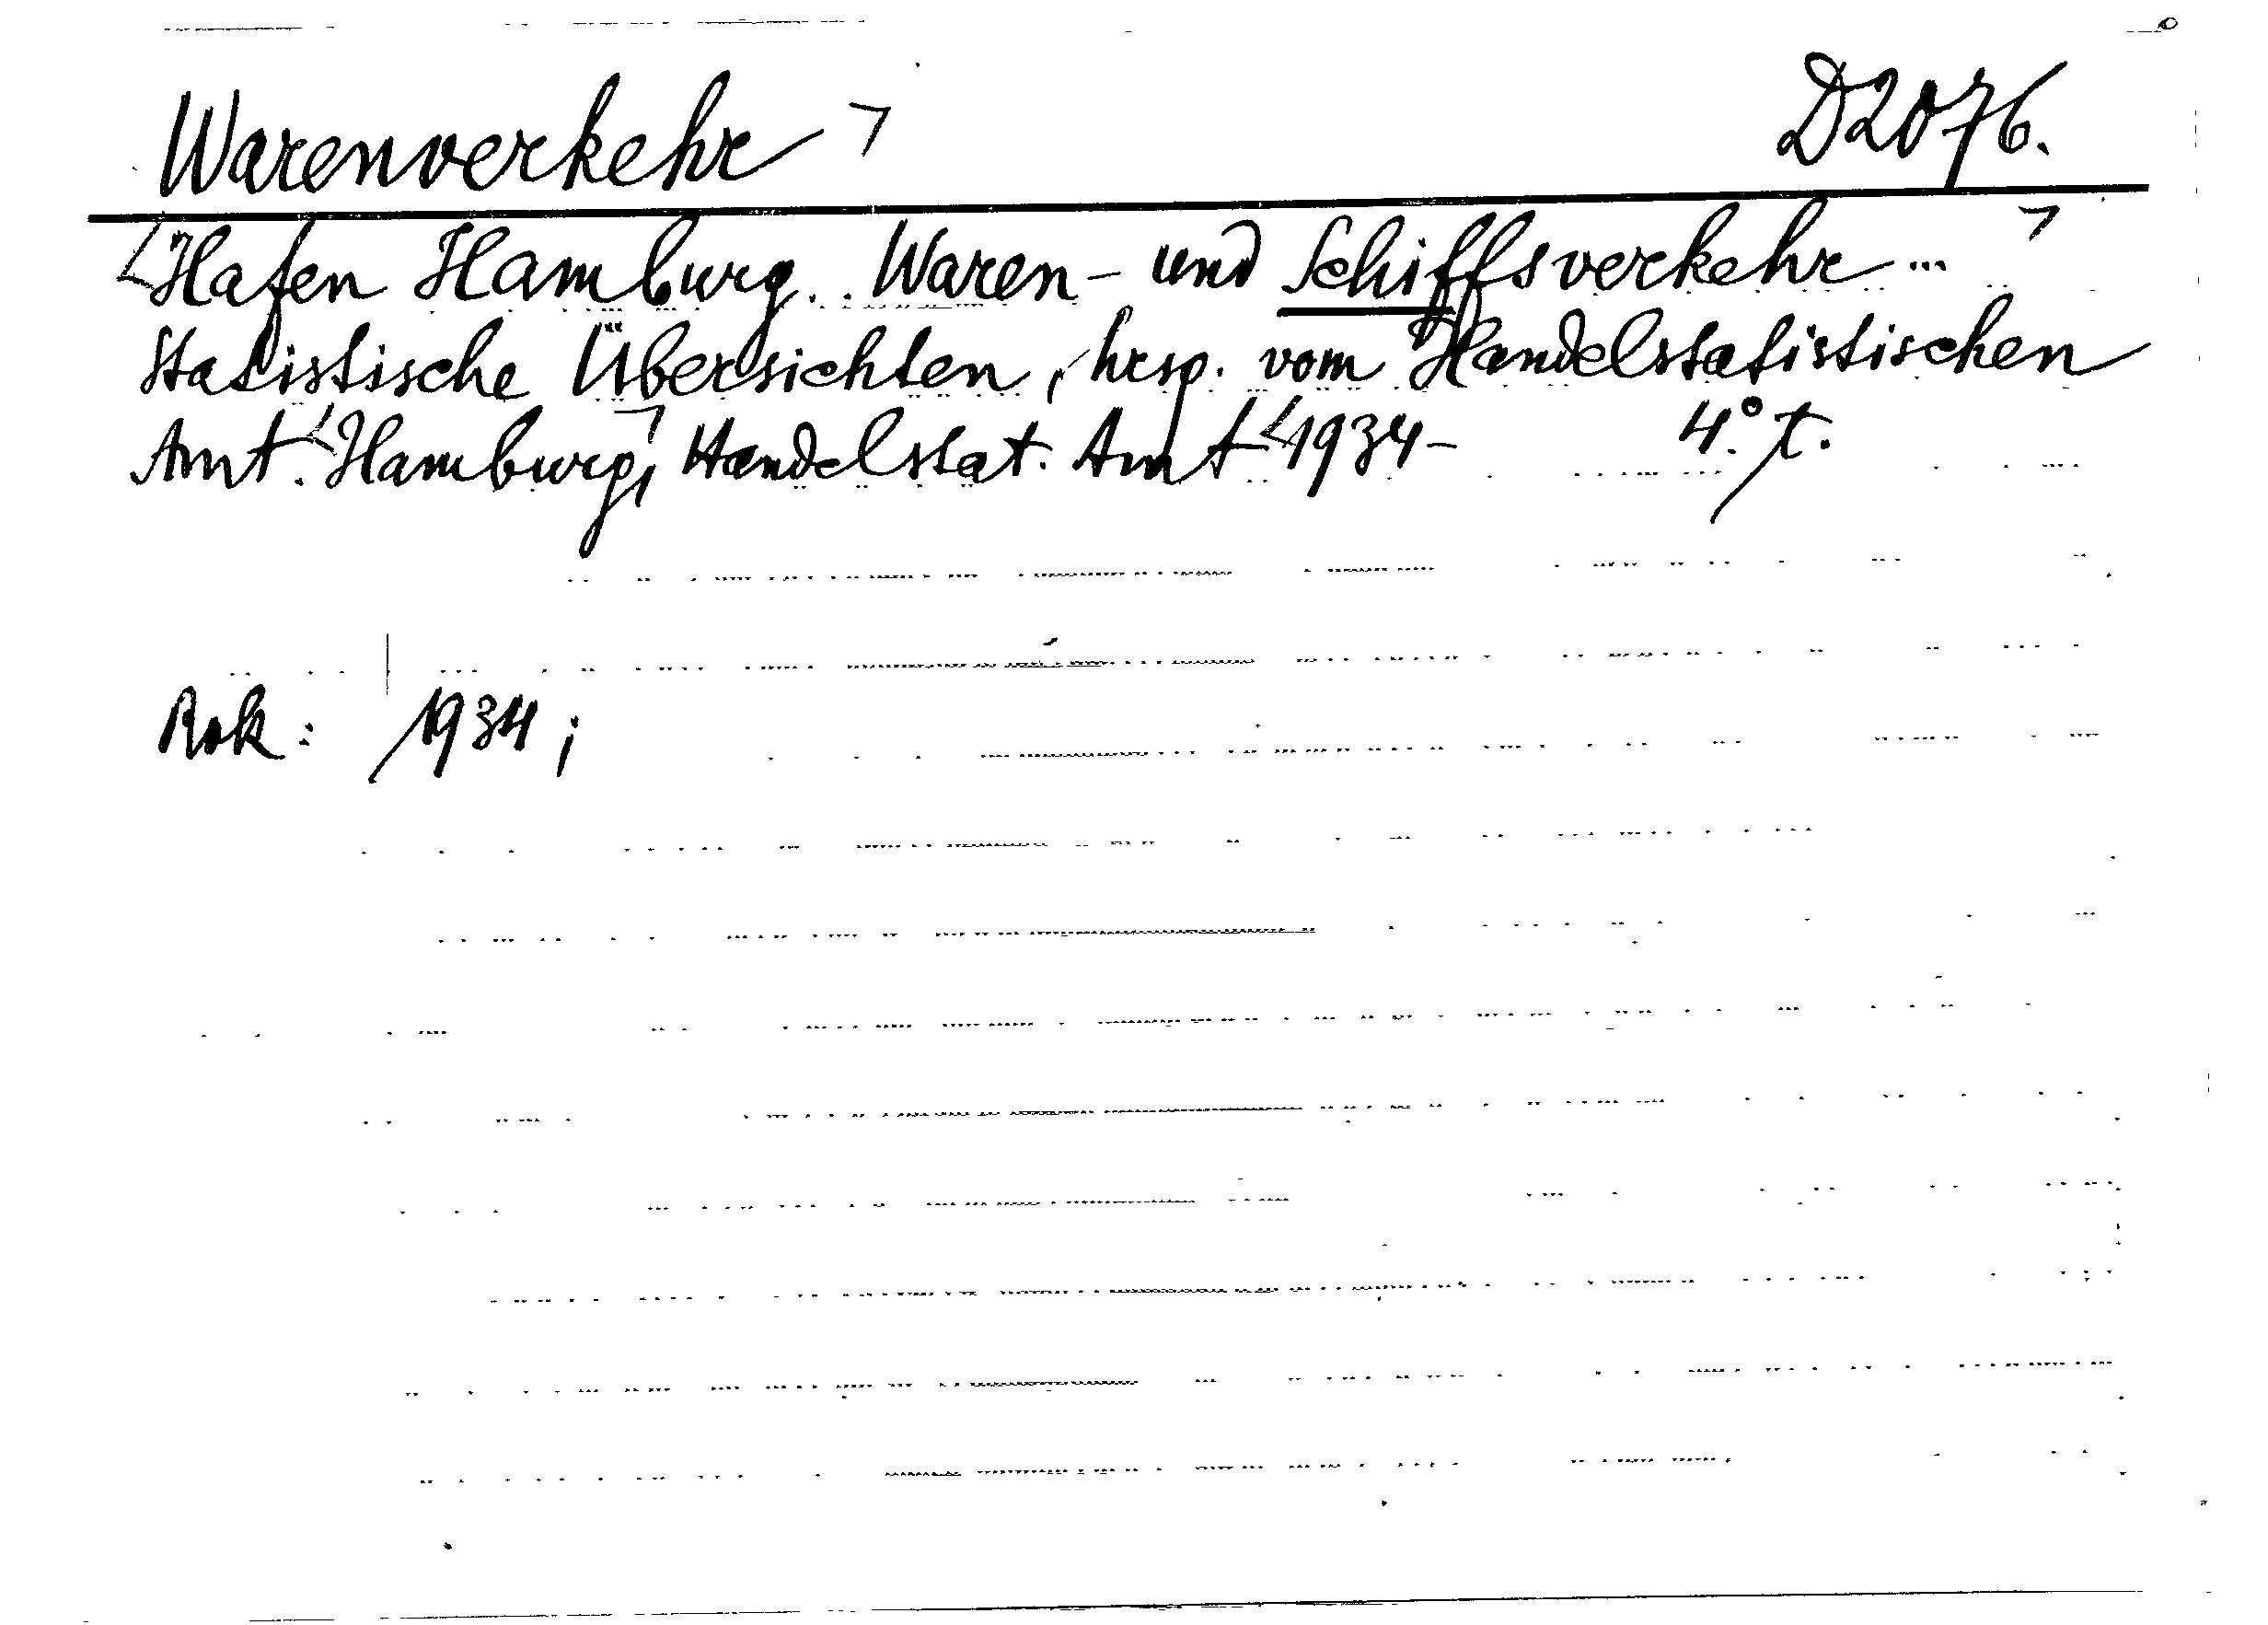 Warenverkehr
D2076.
Hafen Hamburg.. Waren- und Schiffsverkehr...
Statistische Übersichten, hrsg. vom Handelsstatistischen
Amt. Hamburg, Handelsstat. Amt 1934- 4.° t.
Rok: 1934;